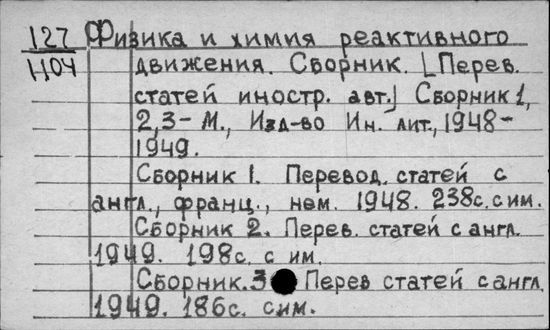 127 Физика и химия реактивного
1104 движения. Сборник. [Перев.
статей иностр. авт.] Сборник 1,
2,3 - М., Изд-во Ин. лит., 1948-
1949.
Сборник 1. Перевод. статей с
англ., франц., нем. 1948. 238с. с им.
Сборник 2. Перев. статей с англ.
1949. 198с. с им.
Сборник. 3 Перев статей с англ.
1949. 186с. с им.